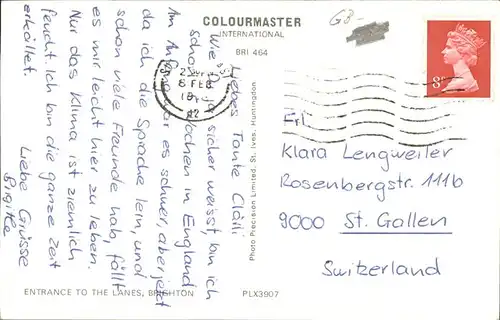 COLOURMASTER
INTERNATIONAL
BRI 464
G8-
8P
8 FEB
Liebes Tante Cläili
Wie du ja sicher weisst, bin ich
schon Wochen in England
Am Anfang war es schwer, aber jetzt
da ich die Sprache lern, und
schon viele Freunde hab, fällt
es mir leicht hier zu leben.
Nur das Klima ist ziemlich
feucht. Ich bin die ganze Zeit
erkältet.
Liebe Grüsse
Brigitte
Photo Precision Limited, St. Ives, Huntingdon
Frl.
Klara Lengweiler
Rosenbergstr. 111b
9000 St. Gallen
Switzerland
ENTRANCE TO THE LANES, BRIGHTON
PLX3907